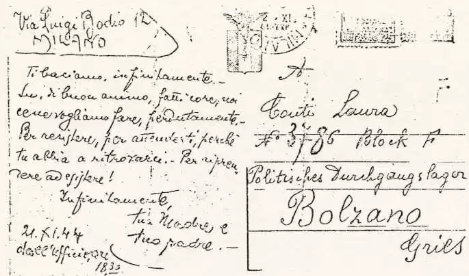 Via Luigi Bodio 12
MILANO
Ti baciamo, infinitamente.-
Su, di buon animo, fatti core, noi
ce ne vogliamo fare, perdutamente.-
Per resistere, per attenderti, perché
tu abbia a ritrovarci.- Per ripren
dere ad esistere!
Infinitamente,
tua Madre e
tuo padre.-
21.XI.44
dall'Ufficio
18.33
A
Conti Laura
N° 3786 Block F
Politisches Durchgangslager
Bolzano
Gries